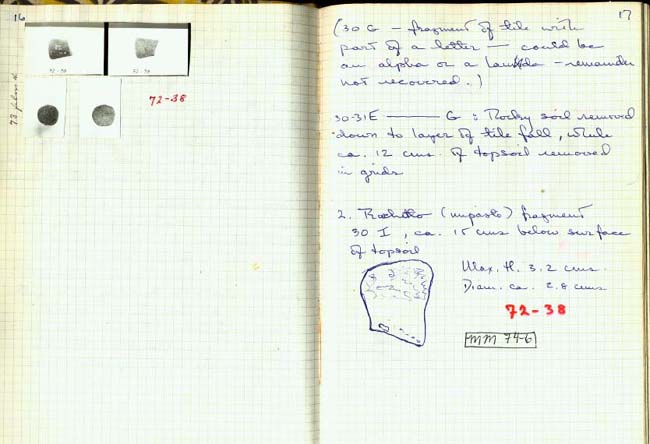 16
72-38
17
(30 G — fragment of tile with
part of a letter — could be
an alpha or a lambda - remainder
not recovered.)
30-31E — G : Rocky soil removed
down to layer of tile fall, while
ca. 12 cms. of topsoil removed
in grids
2. Rocchetto (impasto) fragment
30 I, ca. 15 cms below surface
of topsoil
Max. H. 3.2 cms.
Diam. ca. 2.8 cms
72-38
MM 74-6